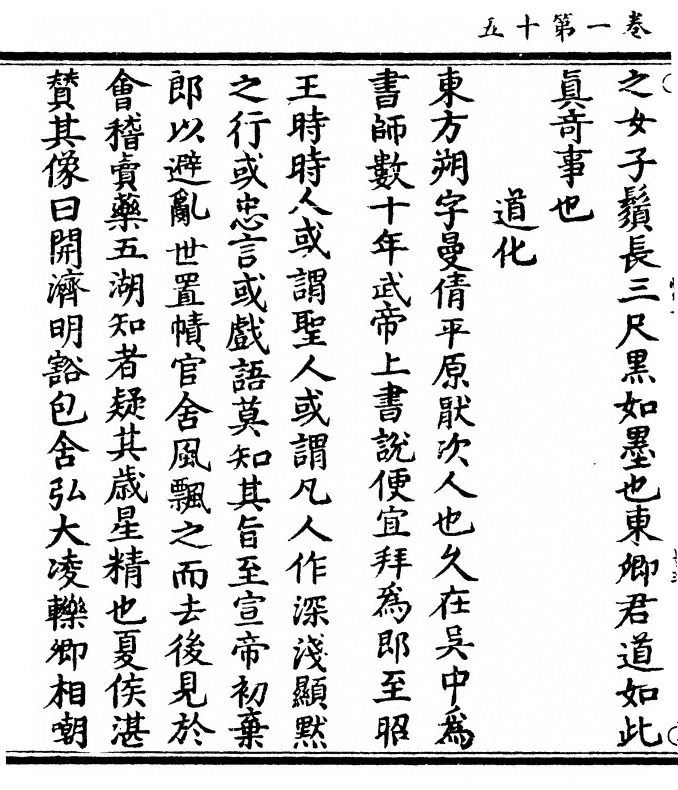 卷一第十五
之女子鬚長三尺黑如墨也東卿君道如此
眞竒事也
道化
東方朔字曼倩平原厭次人也久在吳中爲
書師數十年武帝上書說便宜拜爲郎至昭
王時時人或謂聖人或謂凡人作深淺顯默
之行或忠言或戲語莫知其旨至宣帝初棄
郎以避亂世置幘官舍風飄之而去後見於
會稽賣藥五湖知者疑其歲星精也夏侯湛
賛其像曰開濟明豁包含弘大凌轢卿相嘲